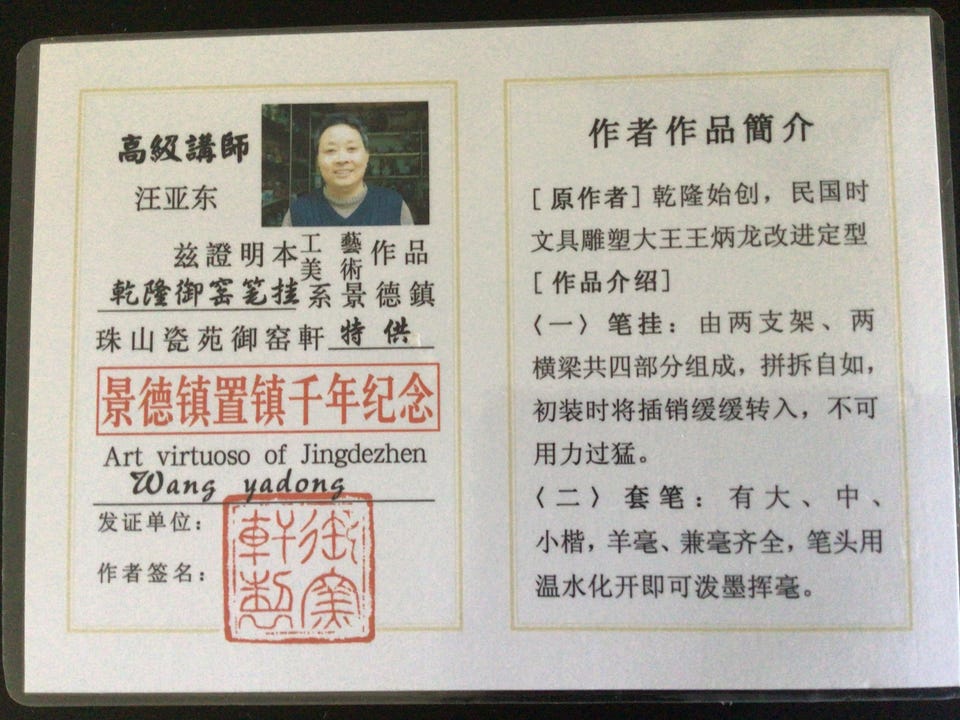 高級講師
汪亚东
兹證明本工美藝術作品
乾隆御窑笔挂系景德鎮
珠山瓷苑御窑軒特供
景德镇置镇千年纪念
Art virtuoso of Jingdezhen
Wang yadong
发证单位：
作者签名：
御窯軒製
作者作品簡介
[原作者]乾隆始创，民国时
文具雕塑大王王炳龙改进定型
[作品介绍]
〈一〉笔挂：由两支架、两
横梁共四部分组成，拼拆自如，
初装时将插销缓缓转入，不可
用力过猛。
〈二〉套笔：有大、中、
小楷，羊毫、兼毫齐全，笔头用
温水化开即可泼墨挥毫。